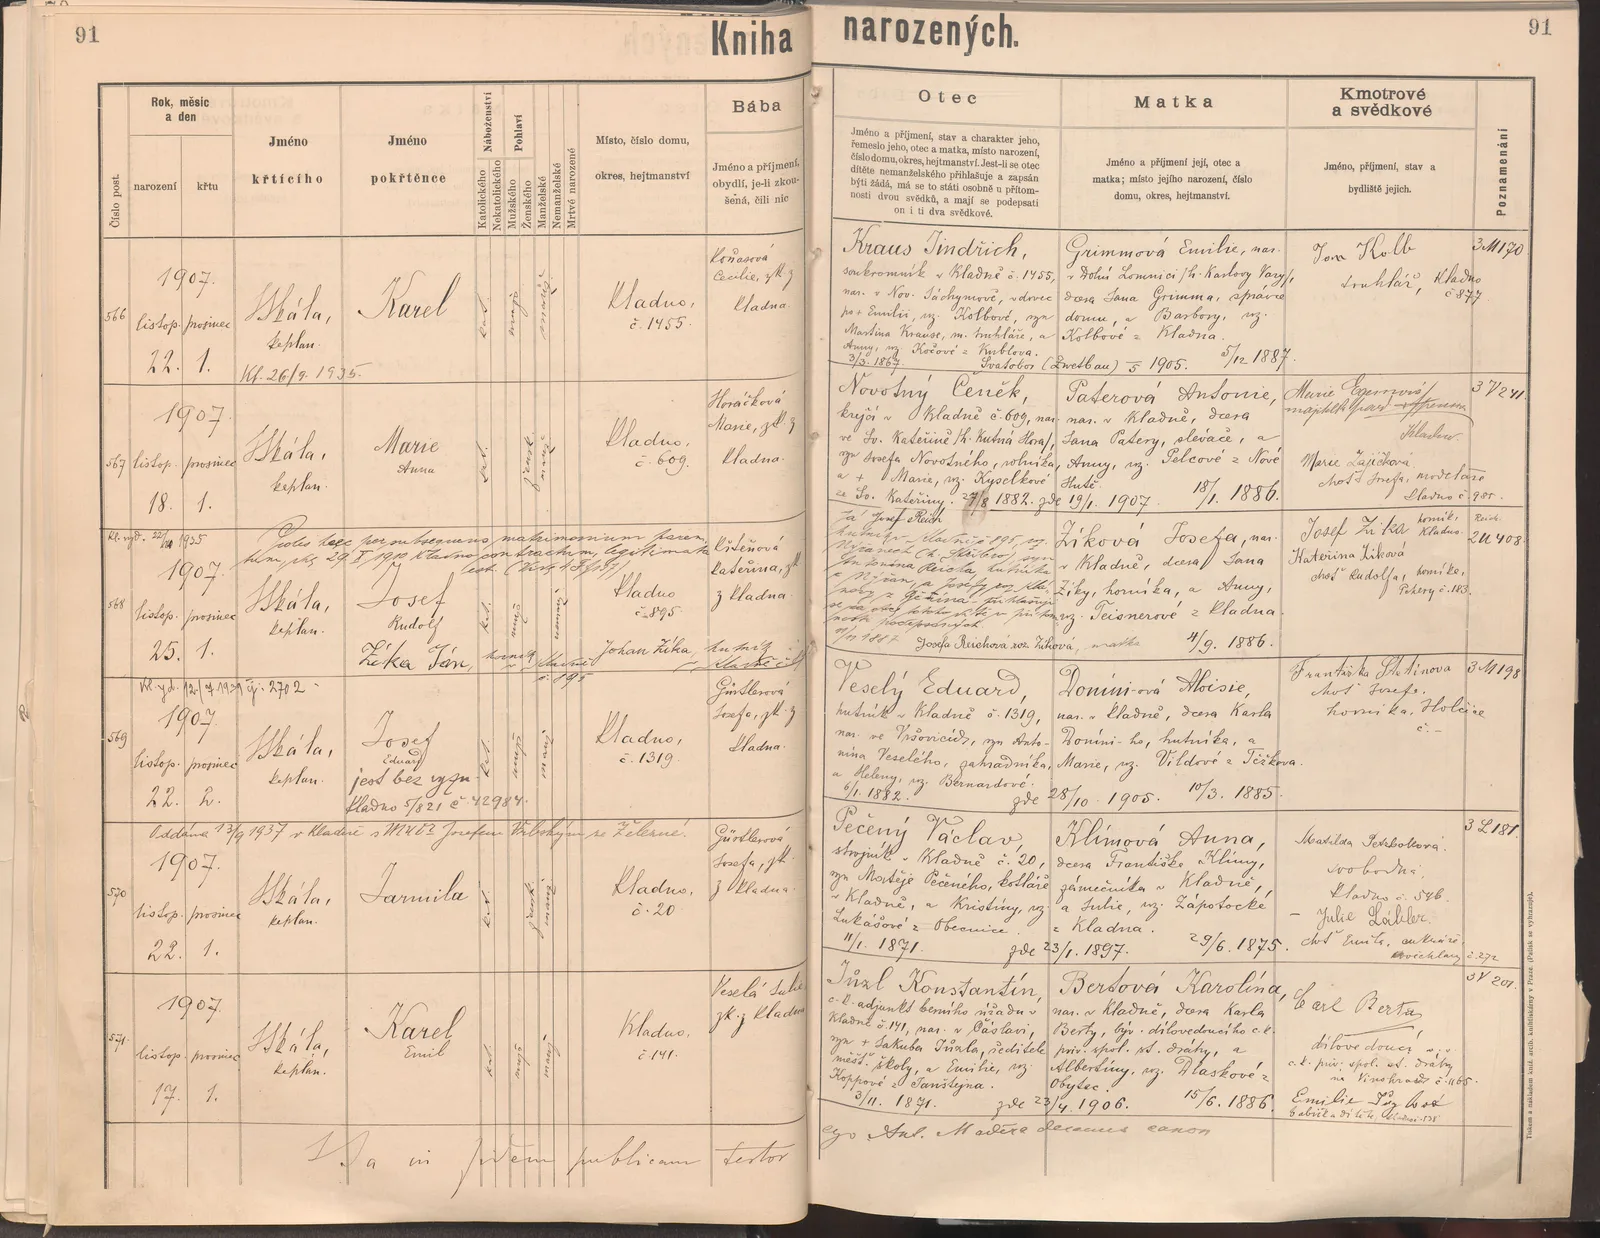 91
Kniha narozených.
91
Číslo post.
Rok, měsíc a den
narození
křtu
Jméno křtícího
Jméno pokřtěnce
Náboženství
Katolického
Nekatolického
Pohlaví
Mužského
Ženského
Manželské
Nemanželské
Mrtvé narozené
Místo, číslo domu, okres, hejtmanství
Bába
Jméno a příjmení, obydlí, je-li zkoušená, čili nic
Otec
Jméno a příjmení, stav a charakter jeho,
řemeslo jeho, otec a matka, místo narození,
číslo domu, okres, hejtmanství. Jest-li se otec
dítěte nemanželského přihlašuje a zapsán
býti žádá, má se to státi osobně u přítom-
nosti dvou svědků, a mají se podepsati
on i ti dva svědkové.
Matka
Jméno a příjmení její, otec a
matka; místo jejího narození, číslo
domu, okres, hejtmanství.
Kmotrové a svědkové
Jméno, příjmení, stav a
bydliště jejich.
Poznamenání
566
1907.
listop. prosinec
22. 1.
Skála,
kaplan.
Kř. 26/9. 1935.
Karel
kat.
Kladno,
č. 1455.
Koňasová
Cecilie, zk. z
Kladna.
Kraus Jindřich,
soukromník v Kladně č. 1455,
nar. v Nov. Jáchymově, vdovec
po + Emilii, roz. Kolbové, syn
Martina Krause, m. truhláře, a
Anny, roz. Kočové z Kublova.
3/3. 1867.
Svatobor (Zwetbau) 5/5 1905.
Grimmová Emilie, nar.
v Dolní Lomnici /h. Karlovy Vary/,
dcera Jana Grimma, správce
domu, a Barbory, roz.
Kolbové z Kladna.
5/12 1887.
Kolb
truhlář, Kladno
č 877
3 M 170
567
1907.
listop. prosinec
18. 1.
Skála,
kaplan.
Marie
Anna
kat.
Kladno,
č. 609.
Horáčková
Marie, zk. z
Kladna.
Novotný Čeněk,
krejčí v Kladně č. 609, nar.
ve Sv. Kateřině /h. Kutná Hora/,
syn Josefa Novotného, rolníka,
a + Marie, roz. Kyselkové
ze Sv. Kateřiny. 27/8 1882. zde 19/1. 1907.
Paterová Antonie,
nar. v Kladně, dcera
Jana Patery, slévače, a
Anny, roz. Pelcové z Nové
Hutě.
18/1. 1886.
Marie
Kladno.
Marie Zajíčková
choť Josefa, modeláře
Kladno č. 985.
3 V 241.
568
Proles haec per subsequens matrimonium paren-
tum, 1919 Kladno contractum, legitimata
est.
1907.
listop. prosinec
25. 1.
Skála,
kaplan.
Josef
Rudolf
kat.
Kladno
č. 895
z Kladna.
Žíka Jan, horník v Kladně
Johan Žíka, hutník
Já Josef Reich
hutník v Kladně č. 895,
Josefa Reichová roz. Žíková, matka
Žíková Josefa, nar.
v Kladně, dcera Jana
Žíky, horníka, a Anny,
roz. Teisnerové z Kladna.
4/9. 1886.
Josef Žíka horník, Kladno.
Kateřina Žíková
choť Rudolfa, horníka,
č. 183.
Reich.
2 U 408.
569
1907.
listop. prosinec
22. 2.
Skála,
kaplan.
Josef
Eduard
jest bez vyzn.
Kladno 5/8 21 č 42984.
kat.
Kladno,
č. 1319.
Gürtlerová
Josefa, zk. z
Kladna.
Veselý Eduard,
hutník v Kladně č. 1319,
nar. ve Vršovicích, syn Anto-
nína Veselého, zahradníka,
a Heleny, roz. Bernardové.
6/1. 1882. zde 28/10. 1905.
Domini-ová Aloisie,
nar. v Kladně, dcera Karla
Domini-ho, hutníka, a
Marie, roz. Vildové z Těžkova.
10/3. 1885.
Františka
choť Josefa,
horníka,
č. -
3 M 198
570
Oddána 13/9 1937 v Kladně s Josefem
1907.
listop. prosinec
22. 1.
Skála,
kaplan.
Jarmila
kat.
Kladno,
č. 20
Gürtlerová
Josefa, zk.
z Kladna.
Pečený Václav,
strojník v Kladně č. 20,
syn Matěje Pečeného, kotláře
v Kladně, a Kristiny, roz.
Lukášové z Obecnice.
11/1. 1871. zde 23/1. 1897.
Klímová Anna,
dcera Františka Klímy,
zámečníka v Kladně,
a Julie, roz. Zápotocké
z Kladna.
29/6. 1875.
Matilda
svobodná,
Kladno č. 546.
Julie
choť Emila, cukráře
č. 272
3 L 181.
571
1907.
listop. prosinec
17. 1.
Skála,
kaplan.
Karel
Emil
kat.
Kladno,
č. 141.
Veselá Julie
zk. z Kladna
Jůzl Konstantin,
c. k. adjunkt berního úřadu v
Kladně č. 141, nar. v Čáslavi,
syn + Jakuba Jůzla, ředitele
měšť. školy, a Emilie, roz.
Koppové z Janštejna.
3/11. 1871. zde 23/4. 1906.
Bertová Karolina,
nar. v Kladně, dcera Karla
Berty, býv. dílovedoucího c. k.
priv. spol. st. dráhy, a
Albertiny, roz. Vlaskové z
Obytec.
15/6. 1886.
Carl Berta
dílovedoucí v. v.
c. k. priv. spol. st. dráhy
na Vinohrad. č. 1165.
Emilie
babička dítěte,
3 V 201.
publicam testor
ego Ant. Maděra decanus canon
Tiskem a nákladem kníž. arcib. knihtiskárny v Praze. (Patisk se vyhrazuje).